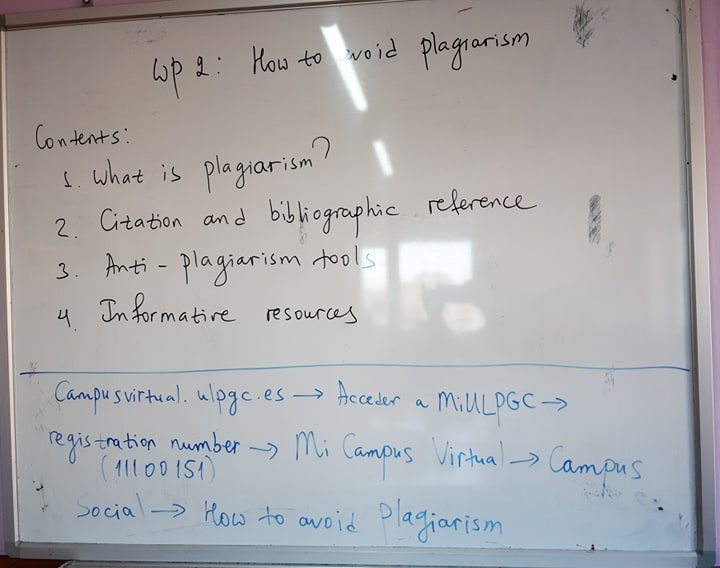 WP 2: How to avoid plagiarism
Contents:
1. What is plagiarism?
2. Citation and bibliographic reference
3. Anti-plagiarism tools
4. Informative resources
Campusvirtual.ulpgc.es → Acceder a MiULPGC →
registration number → Mi Campus Virtual → Campus
(11100151)
Social → How to avoid Plagiarism